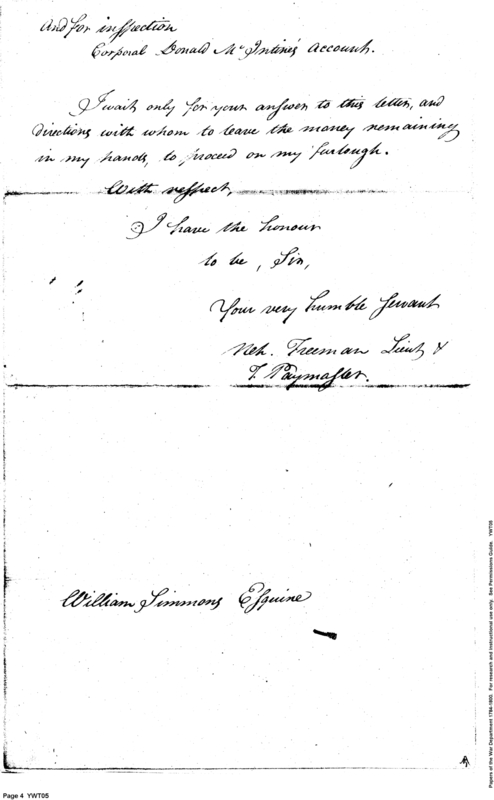 And for inspection
Corporal Donald McIntire's Account.
I wait only for your answer to this letter, and
directions with whom to leave the money remaining
in my hands, to proceed on my furlough.
With respect,
I have the honour
to be, Sir,
Your very humble servant
Neh. Freeman Lieut &
T. Paymaster.
William Simmons Esquire
Papers of the War Department 1784-1800. For research and instructional use only. See Permissions Guide. YWT05
Page 4 YWT05